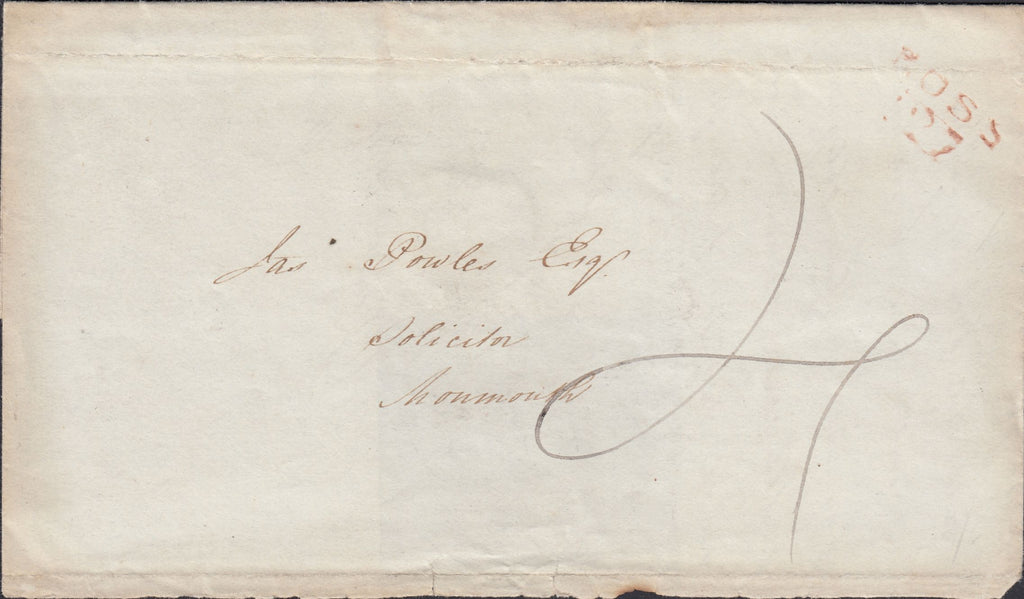 ROSS
Jas Powles Esqr
Solicitor
Monmouth
4